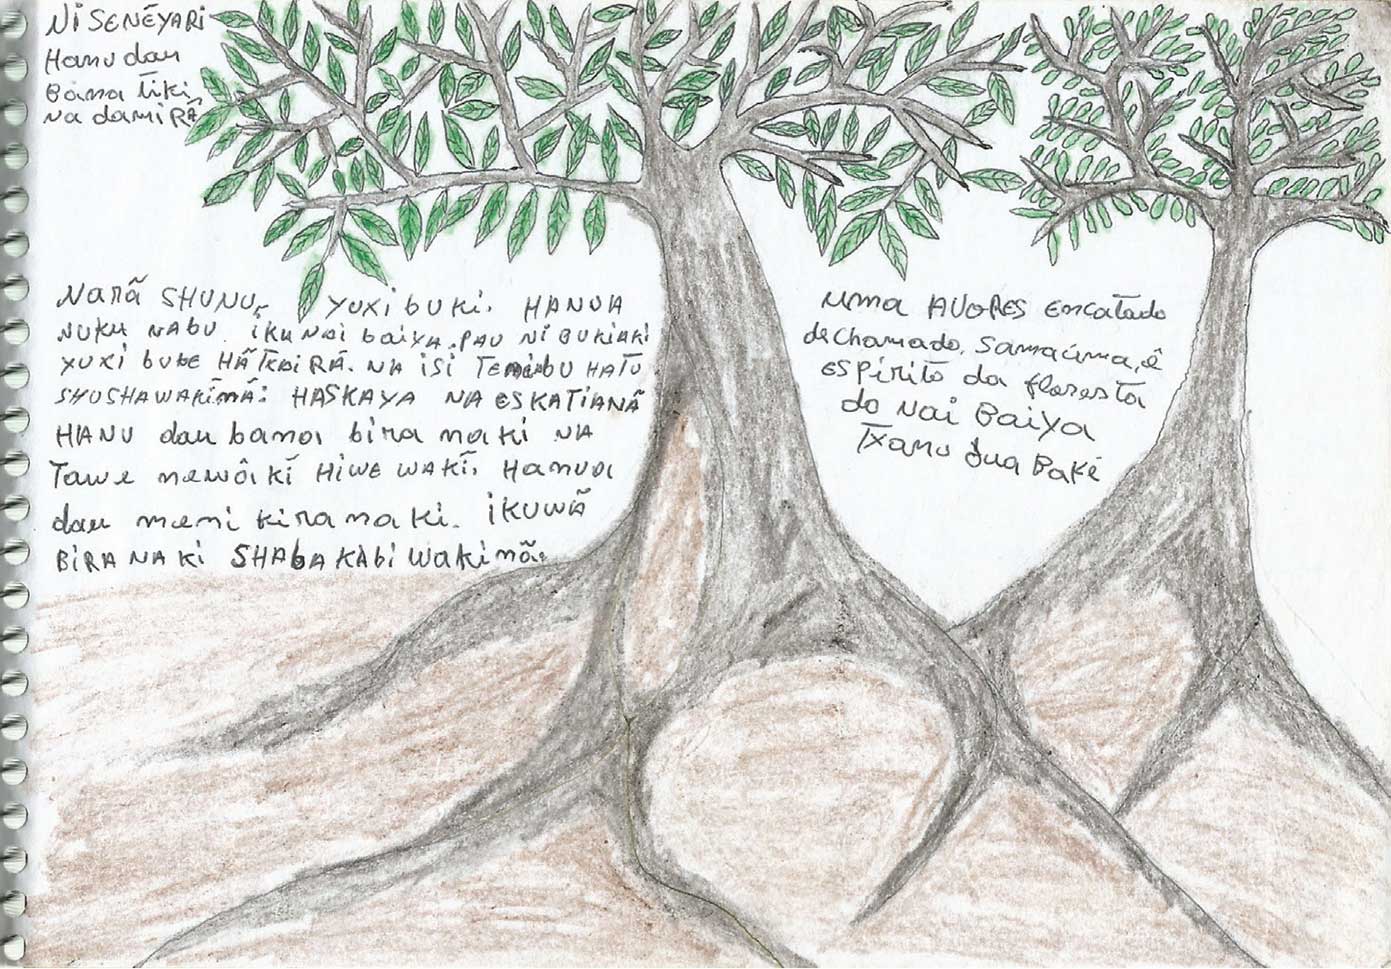 Ni SENẼYARI
Hanu dau
Bana tiki
NA dami RÃ
NARÃ SHUNU, YUXI bu ki. HANUA
NUKU NABU IKU NAI baiYA. PAU Ni BUKIAKI
YUXI buBE HÃTXAIRÃ. NA iSi TEMUbu HATU
SHUSHAWAKĨMÃ: HASKAYA NA ESKATIANÃ
HANU dau bana bira na ki NA
Tawe newôi kĩ HiWE WAKĨ. Hanua
dau meni kira na ki. iKUWÃ
BiRA NA Ki SHAbA KAbi WAKimã.
uma AVORES encatado
de chamado. Samaúma, ê
espirito da floresta
do NAi BaiYa
Txanu Dua Bakê